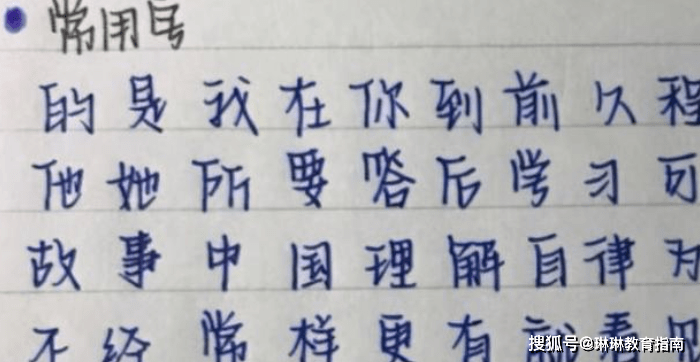 常用字
的是我在你到前久程
他她所要答后学习可
故事中国理解自律为
不经常样更有
搜狐号@琳琳教育指南